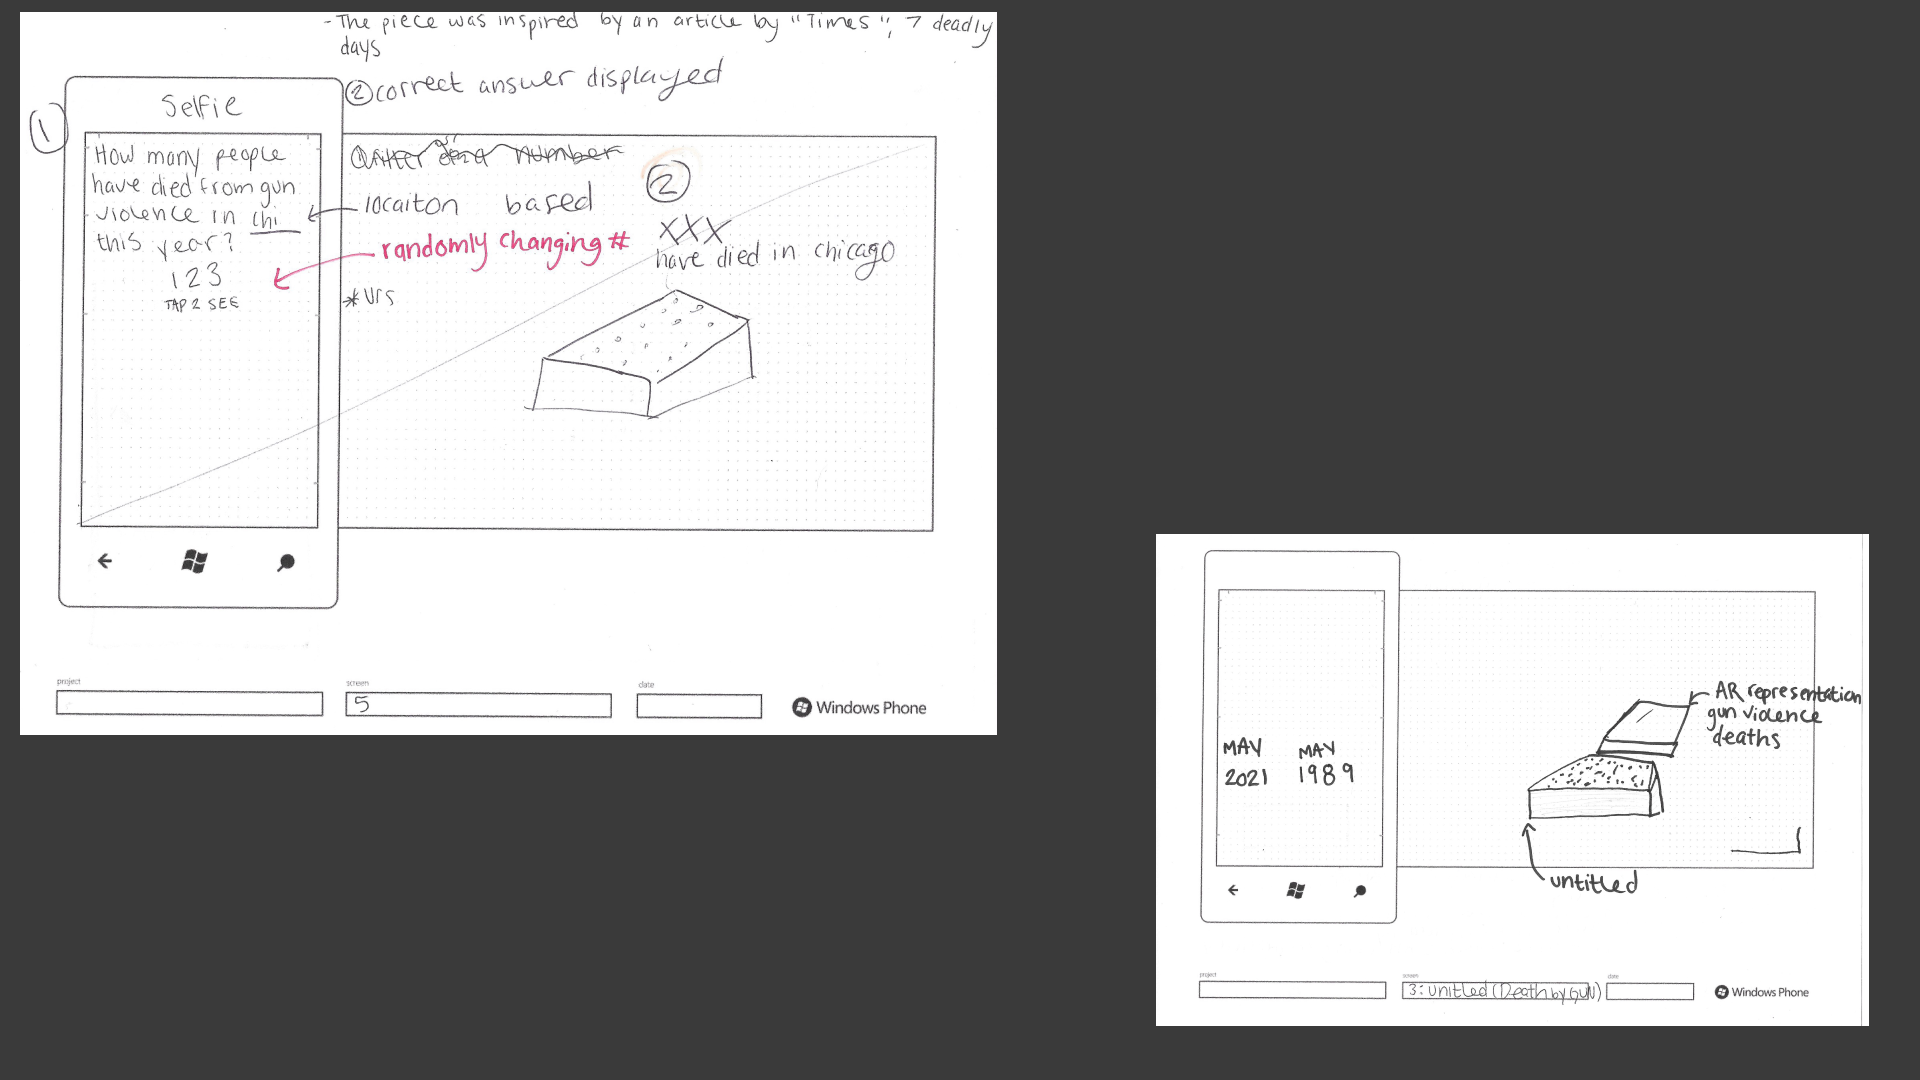 - The piece was inspired by an article by "Times", 7 deadly
days
② correct answer displayed
①
Selfie
How many people
have died from gun
violence in chi
this year?
123
TAP 2 SEE
number
locaiton based
randomly changing #
*urs
②
XXX
have died in chicago
project
screen
5
date
Windows Phone
AR representation
gun violence
deaths
MAY
2021
MAY
1989
untitled
project
screen
3: unitled (Death by GUN)
date
Windows Phone